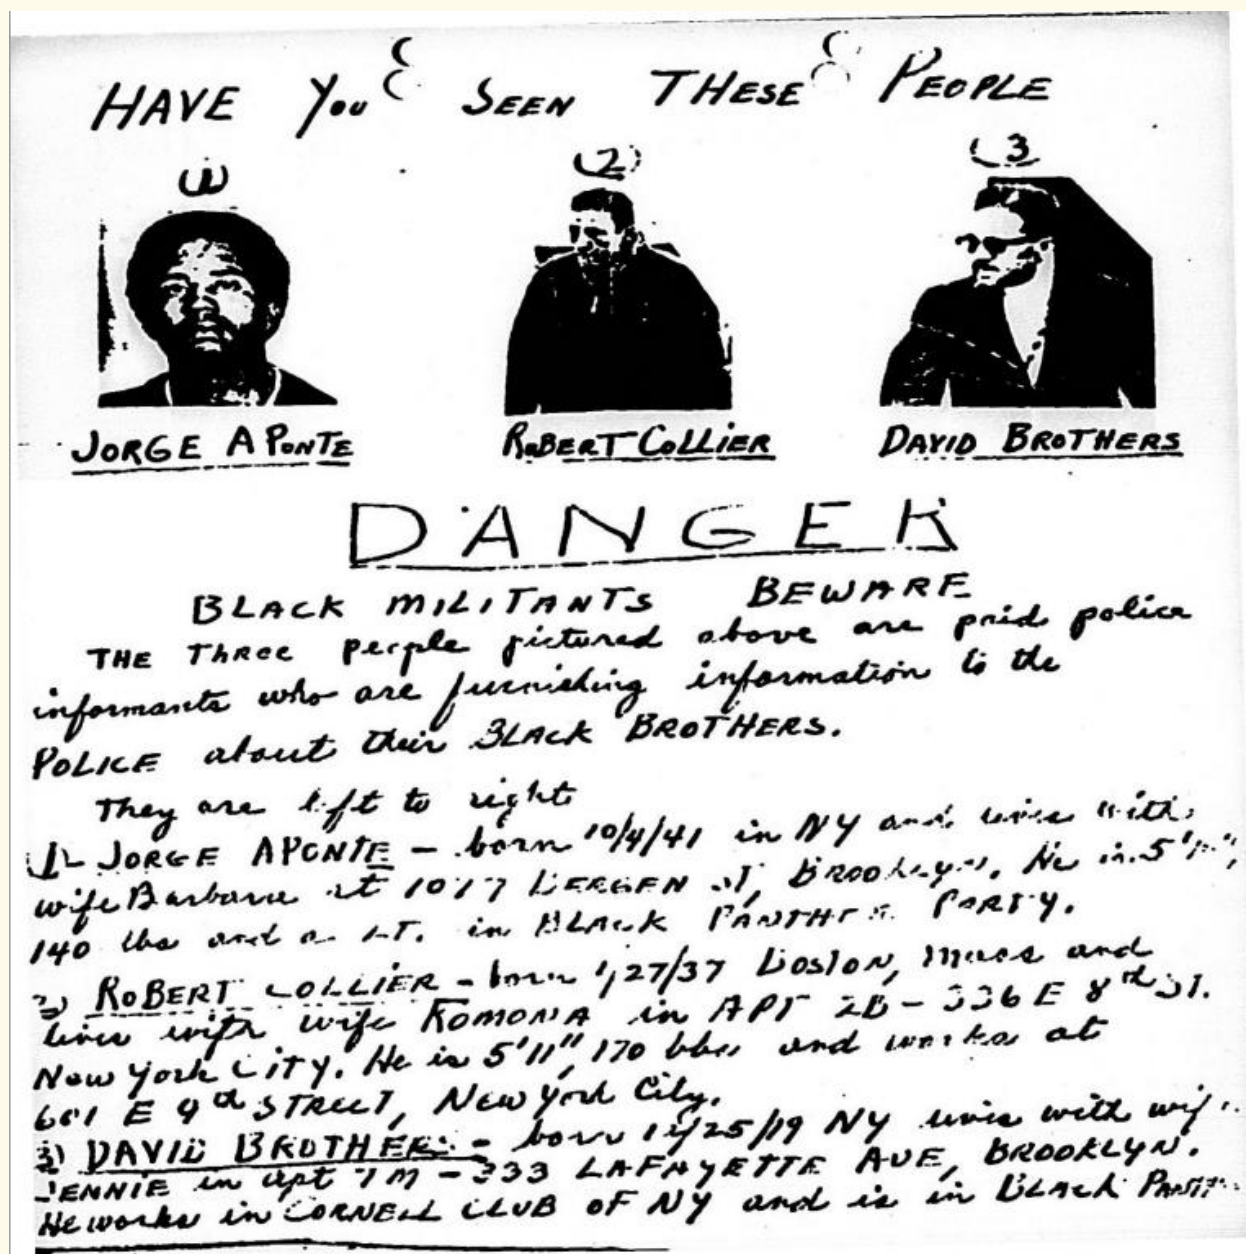 HAVE YOU SEEN THESE PEOPLE
(1) (2) (3
JORGE APONTE ROBERT COLLIER DAVID BROTHERS
DANGER
BLACK MILITANTS BEWARE
THE THREE people pictured above are paid police
informants who are furnishing information to the
POLICE about their BLACK BROTHERS.
They are left to right
1- JORGE APONTE - born 10/4/41 in NY and lives with
wife Barbara at 1077 BERGEN ST, BROOKLYN. He is 5'
140 lbs and a LT. in BLACK PANTHER PARTY.
2) ROBERT COLLIER - born 1/27/37 Boston, Mass and
lives with wife ROMONA in APT 2B - 336 E 8th ST.
New York City. He is 5'11", 170 lbs and works at
601 E 9th STREET, New York City.
3) DAVID BROTHERS - born 12/25/19 NY lives with wife
JENNIE in apt 7M - 333 LAFAYETTE AVE, BROOKLYN.
He works in CORNELL CLUB OF NY and is in BLACK